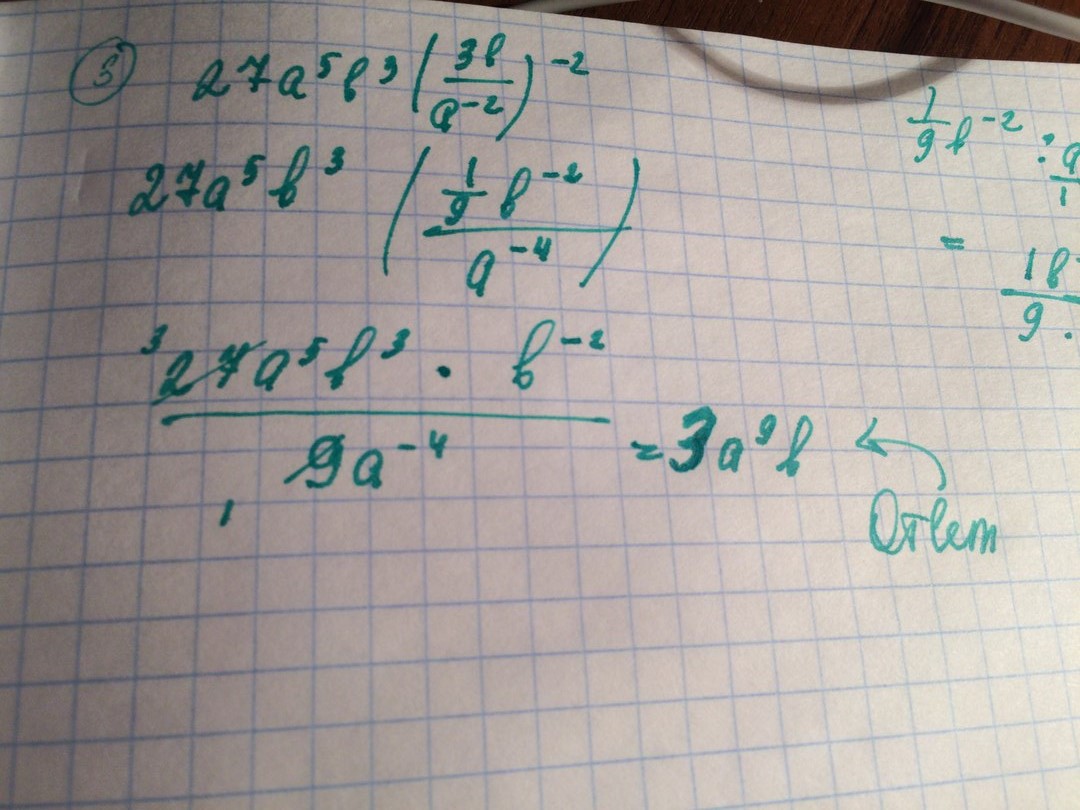 5 27a⁵b³(3b/a⁻²)⁻²
27a⁵b³ (1/9 b⁻² / a⁻⁴)
³27a⁵b³ · b⁻² / 9a⁻⁴ = 3a⁹b
1
Ответ
1/9 b⁻² :
= 1b / 9 ·